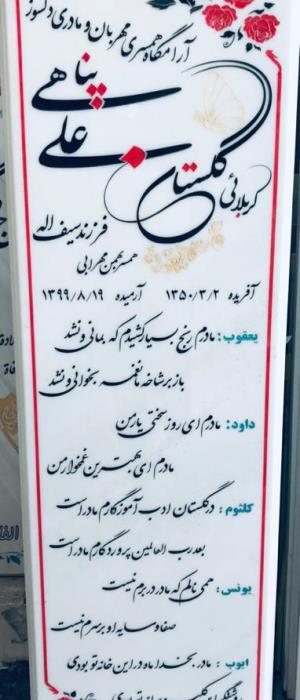 آرامگاه همسری مهربان و مادری دلسوز
کربلائی گلستان علی پناهی
فرزند سیف اله
همسر بهمن مهرابی
آفریده ۱۳۵۰/۳/۲ آرمیده ۱۳۹۹/۸/۱۹
یعقوب: مادرم رنج بسیار کشیدم که بمانی و نشد
باز بر شاخه ما نغمه بخوانی و نشد
داود: مادرم ای روز سختی یار من
مادرم ای بهترین غمخوار من
کلثوم: در گلستان ادب آموزگارم مادر است
بعد رب العالمین پروردگارم مادر است
یونس: همی نالم که مادر در برم نیست
صفا و سایه او بر سرم نیست
ایوب: مادر بخدا ماه در این خانه تو بودی